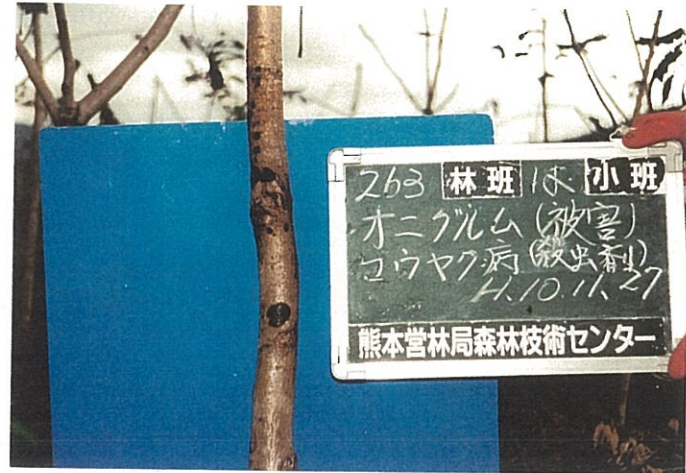 263 林班 は 小班
オニグルム (被害)
コウヤク病 (殺虫剤)
H.10.11.27
熊本営林局森林技術センター